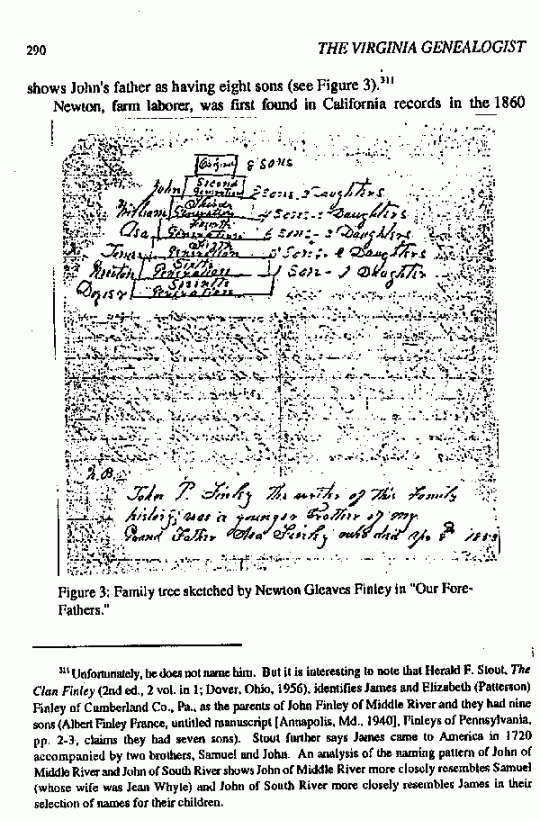 290
THE VIRGINIA GENEALOGIST
shows John's father as having eight sons (see Figure 3).³¹¹
Newton, farm laborer, was first found in California records in the 1860
8 Sons
John Second Generation 2 Sons 3 Daughters
William Third Generation 4 Sons - 2 Daughters
Asa Fourth Generation 6 Sons - 2 Daughters
Fifth Generation Sons - 2 Daughters
Newton Sixth Generation 1 Son - 1 Daughter
Generation
N.B.
John P. Finley the writer of this Family
history, was a younger Brother of my
Grand Father Asa Finley who died
Figure 3: Family tree sketched by Newton Gleaves Finley in "Our Fore-
Fathers."
³¹¹ Unfortunately, he does not name him. But it is interesting to note that Herald F. Stout, The
Clan Finley (2nd ed., 2 vol. in 1; Dover, Ohio, 1956), identifies James and Elizabeth (Patterson)
Finley of Cumberland Co., Pa., as the parents of John Finley of Middle River and they had nine
sons (Albert Finley France, untitled manuscript [Annapolis, Md., 1940], Finleys of Pennsylvania,
pp. 2-3, claims they had seven sons). Stout further says James came to America in 1720
accompanied by two brothers, Samuel and John. An analysis of the naming pattern of John of
Middle River and John of South River shows John of Middle River more closely resembles Samuel
(whose wife was Jean Whyle) and John of South River more closely resembles James in their
selection of names for their children.